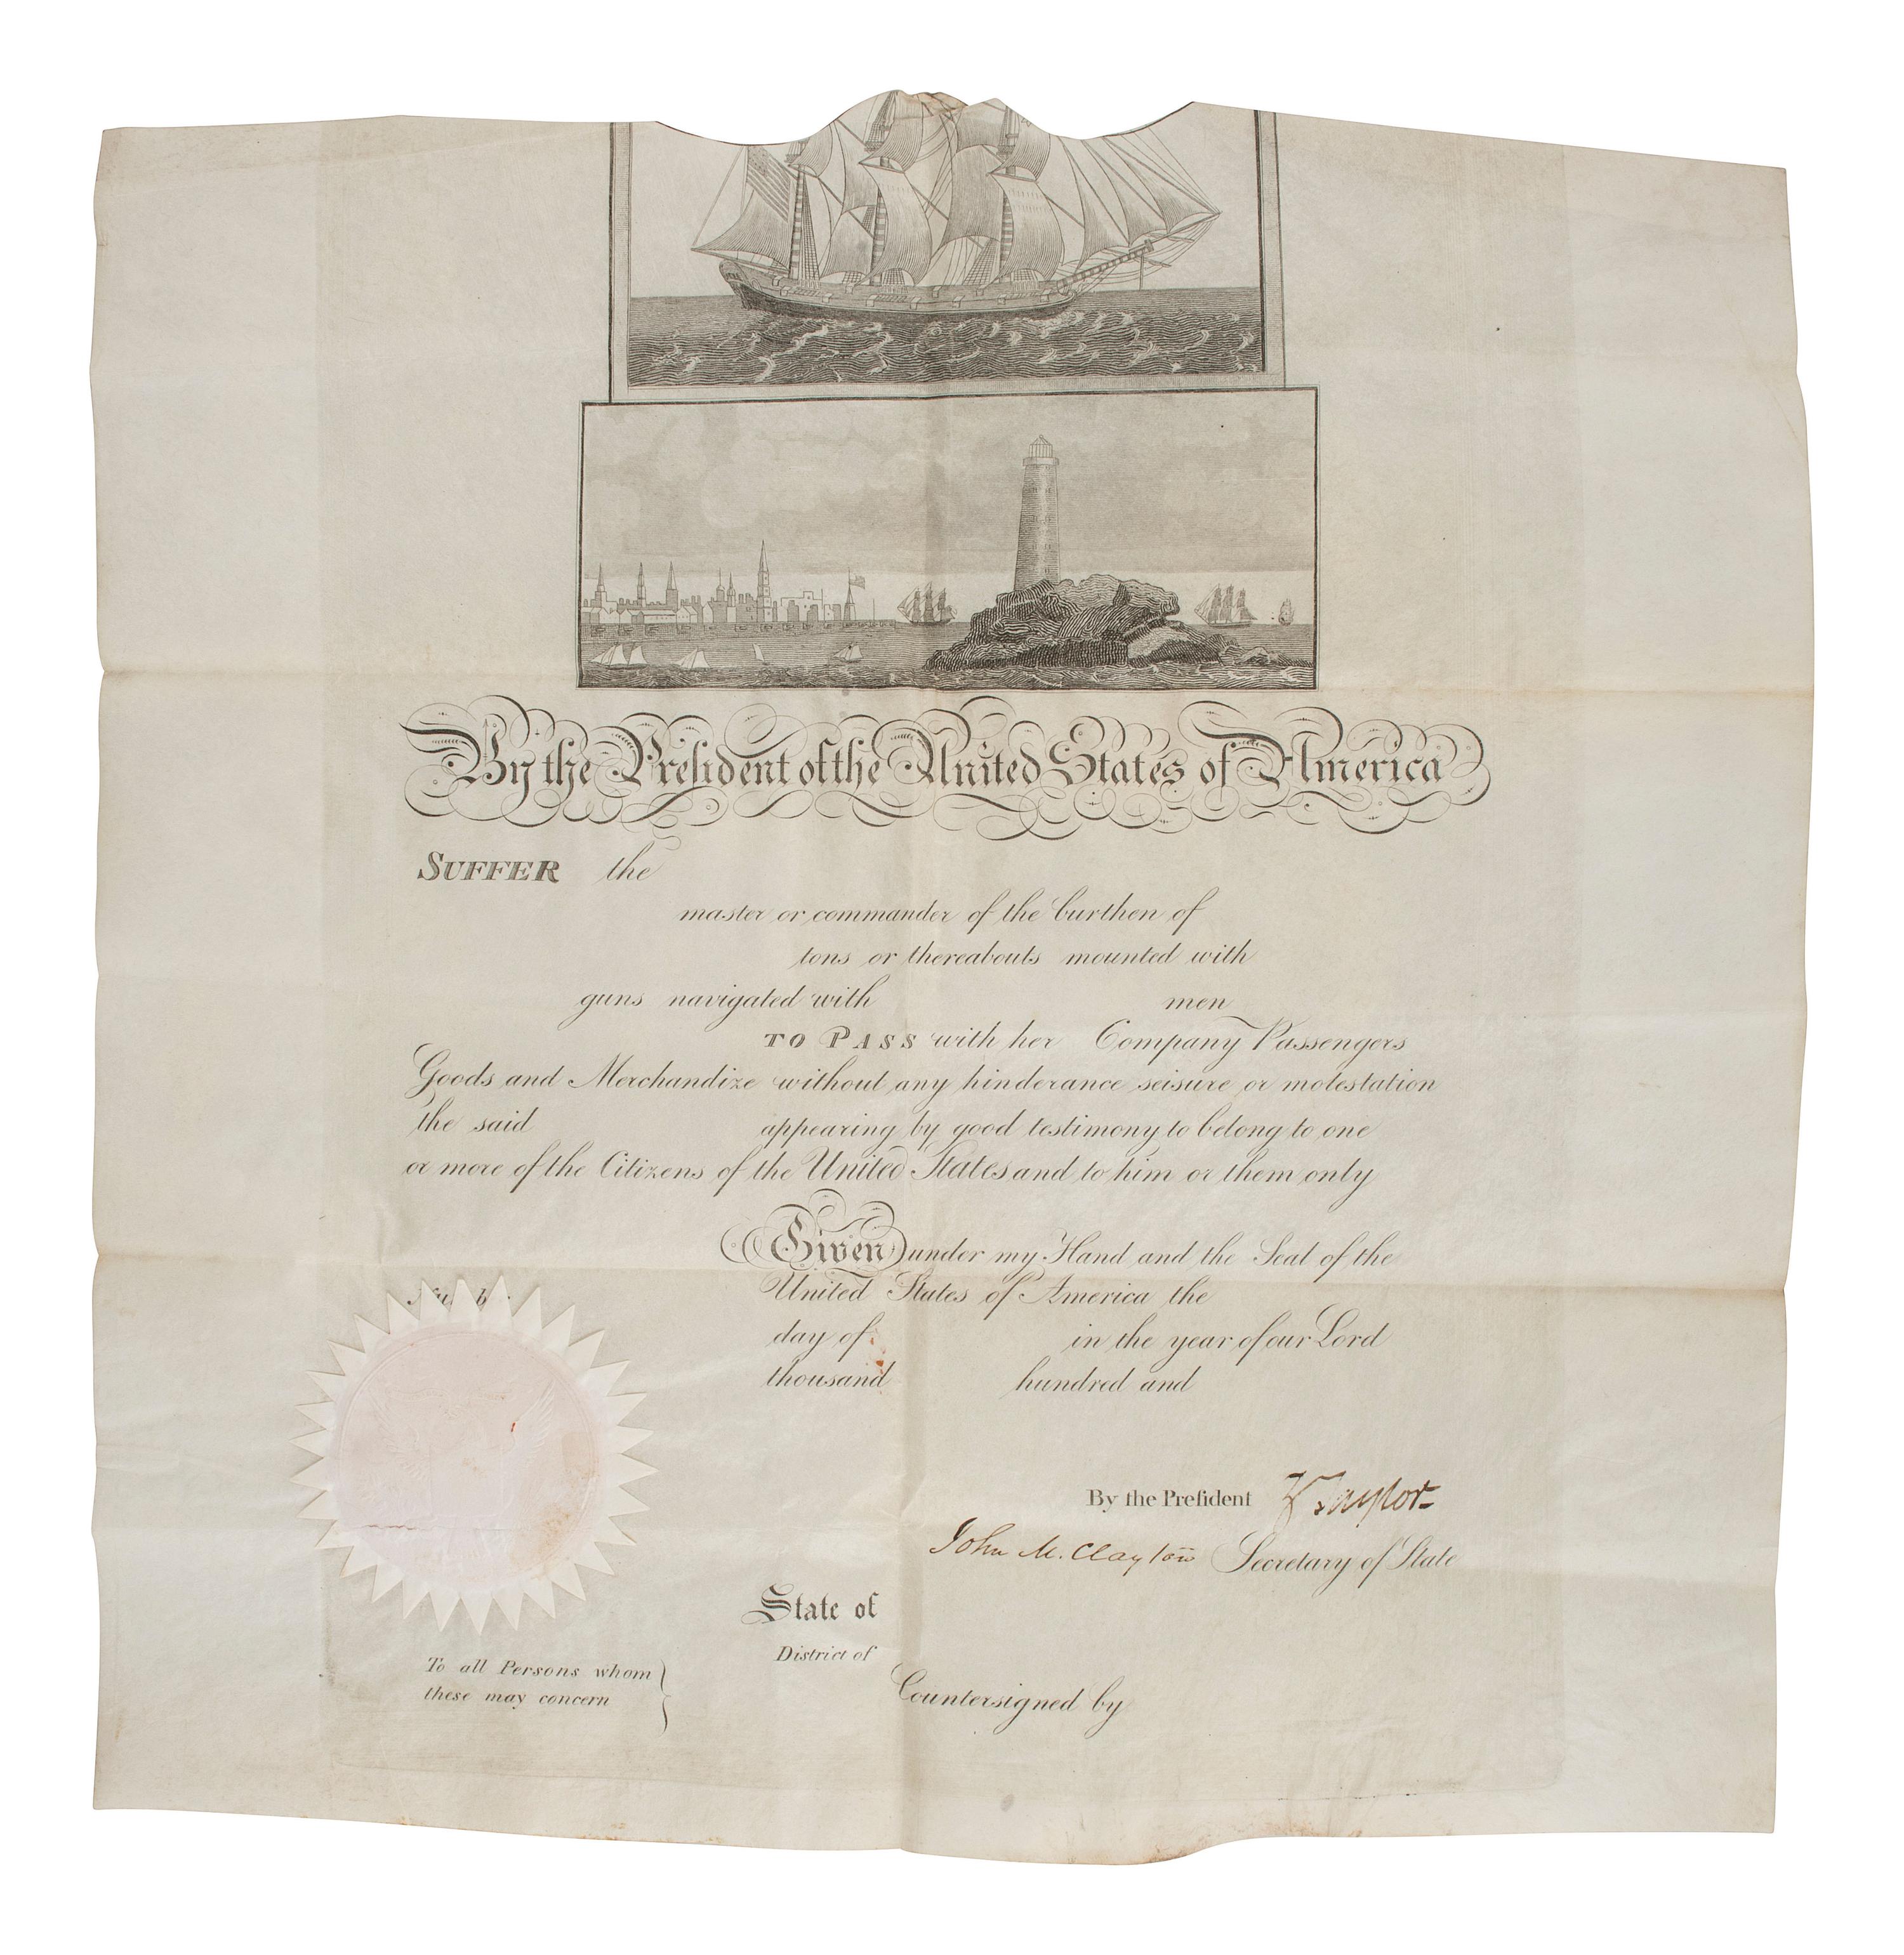 By the Preſident of the United States of America
SUFFER the
master or commander of the burthen of
tons or thereabouts mounted with
guns navigated with men
TO PASS with her Company Passengers
Goods and Merchandize without any hinderance seisure or molestation
the said appearing by good testimony to belong to one
or more of the Citizens of the United States and to him or them only
Given under my Hand and the Seal of the
United States of America the
day of in the year of our Lord
thousand hundred and
By the Preſident Z Taylor
John M. Clayton Secretary of State
State of
District of
To all Persons whom
these may concern
Countersigned by